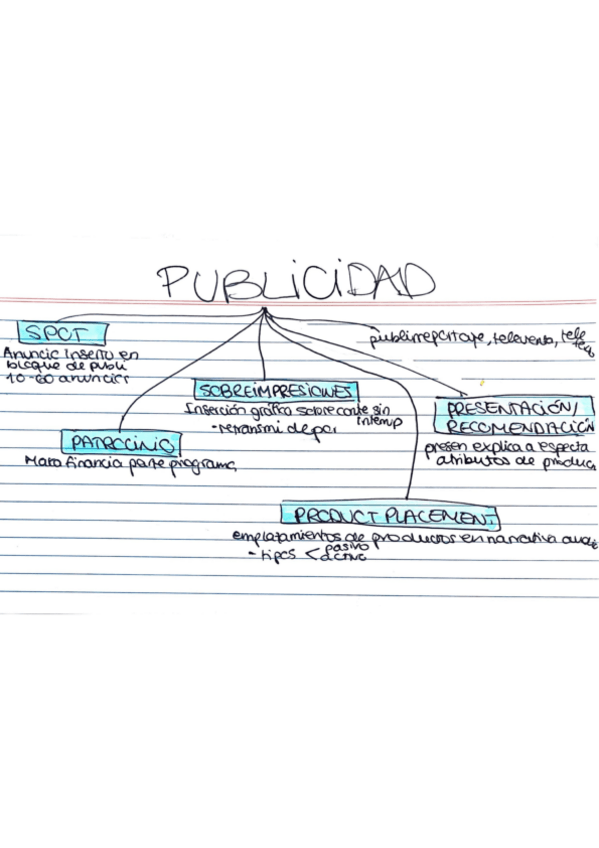 PUBLICIDAD
SPOT
Anuncio inserto en
bloque de publi
10-60 anuncios
publirreportaje, televenta, tele
SOBREIMPRESIONES
Inserción gráfica sobre conte sin
interrup
- retransmi depor
PRESENTACIÓN/
RECOMENDACIÓN
presen explica a especta
atributos de produc
PATROCINIO
Marca financia parte programa
PRODUCT PLACEMENT
emplazamientos de productos en narrativa audi
- tipos < pasivo
activo